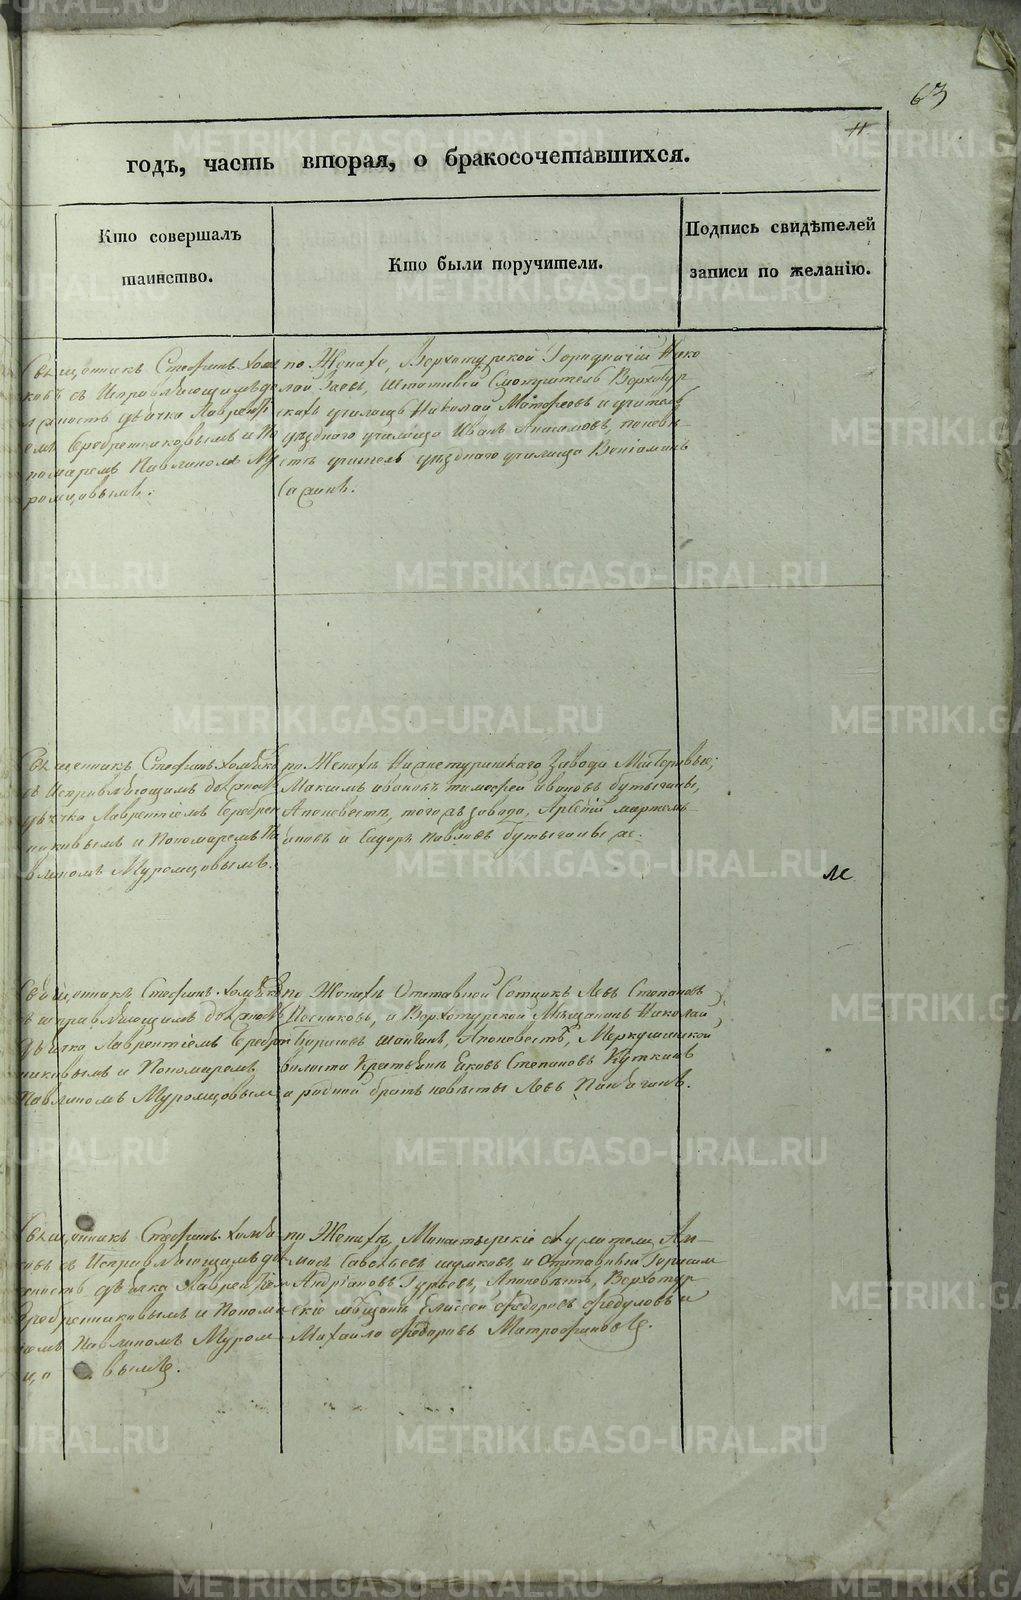 63
11.
годъ, часть вторая, о бракосочетавшихся.
Кто совершалъ
таинство.
Кто были поручители.
Подпись свидѣтелей
записи по желанію.
Священникъ Стефанъ Хомя
ковъ съ Исправляющимъ до
лжность дьячка Лаврентi
емъ Серебрениковымъ и По
номаремъ Павлиномъ Му
ромцовымъ.
по Женихе, Верхотурской Городничій Нико
лай Штатный Смотритель Верхотур
скихъ училищъ Николай Матфеевъ и учитель
уѣзднаго училища Иванъ поневѣ-
стѣ учитель уѣзднаго училища Веніаминъ
Священникъ Стефанъ Хомяковъ
съ Исправляющимъ должность
дьячка Лаврентіемъ Серебрен
никовымъ и Пономаремъ Па
влиномъ Муромцовымъ.
по Женихѣ Нижнетуринскаго Завода
Максимъ ивановъ тимофей ивановъ бутыгины,
Апоневестѣ, того жъ завода, Арсеній мартем
ьяновъ и Сидоръ Павловъ бутыгины же.
м
Священникъ Стефанъ Хомяковъ
съ исправляющимъ должность
дьячка Лаврентіемъ Серебрен
никовымъ и Пономаремъ
Павлиномъ Муромцовымъ
по Женихѣ Отставной Сотникъ Левъ Степановъ
Постниковъ, и Верхотурской Мѣщанинъ Николай
Борисовъ Апоневестѣ, Меркушинской
волости Крестьянъ Яковъ Степановъ Куткинъ
а родной братъ невѣсты Левъ
Священникъ Стефанъ Хомя
ковъ съ Исправляющимъ до
лжность дьячка Лаврентіем
Серебрениковымъ и Понома
ремъ Павлиномъ Муром
цо вымъ.
по Женихѣ, Монастырскіе служители, Ам-
мосъ Савельевъ шумковъ, и Отставный Герасим
Андріановъ Гурьевъ, Апоневѣстѣ, Верхотур
скіе мѣщанъ Елисей Федоровъ Федуловъ и
Михайло Федоровъ Митрофановъ.
METRIKI.GASO-URAL.RU